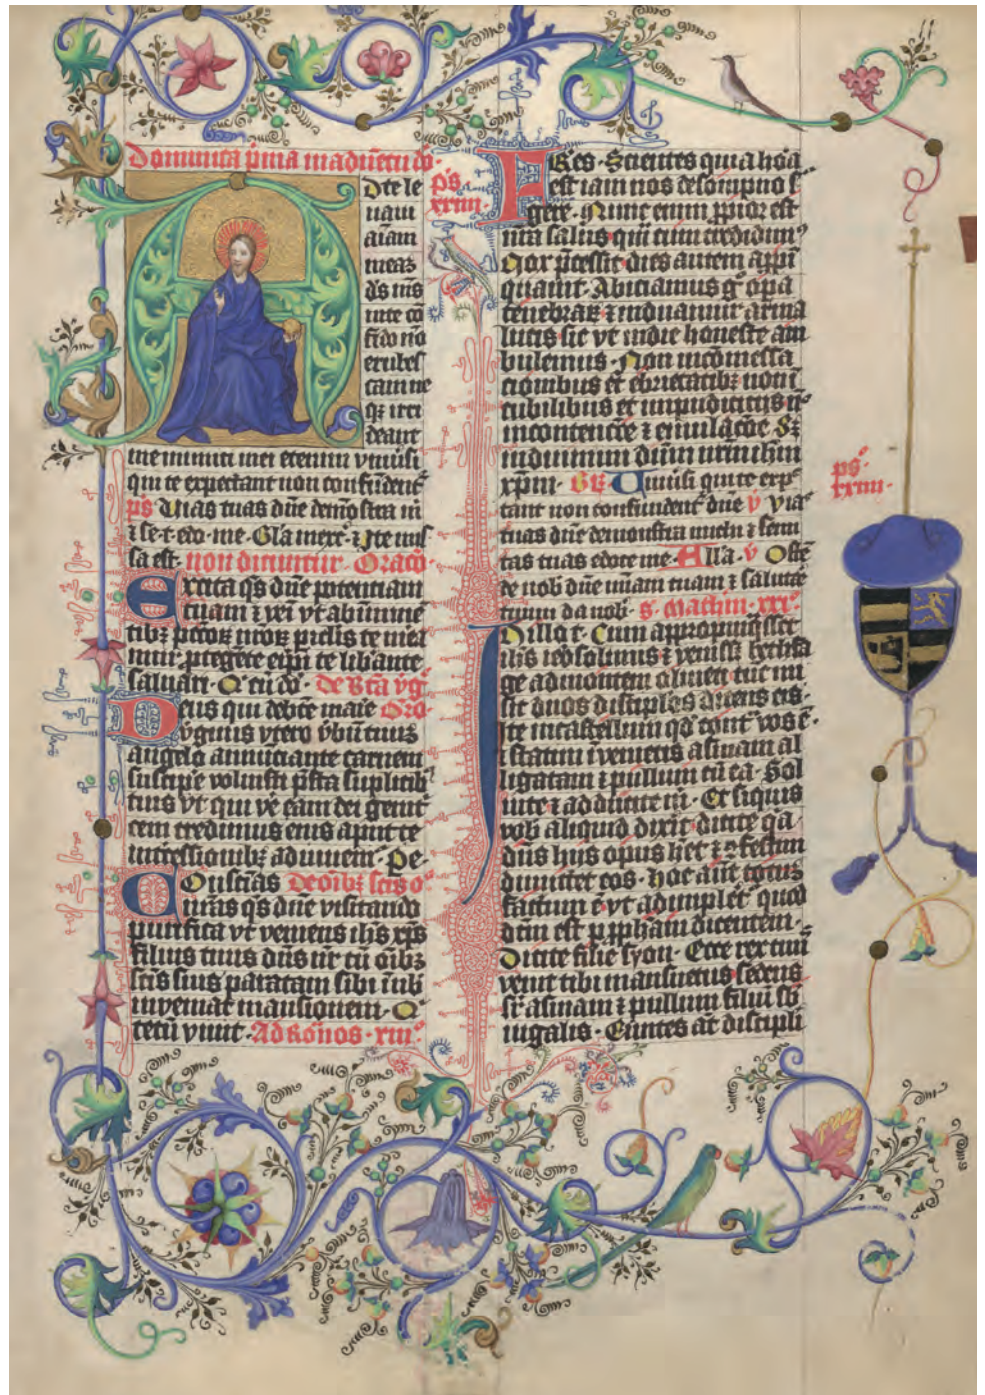 Dominica p̄ma in aduētu do.
Dte le
uaui
aīam
meaꝫ
ds̄ ms̄
in te cō
fido nō
erubes
cam ne
qꝫ irri
deant
me inimici mei etenim vniūsi
qui te expectant non confūdentꝰ
ps̄ Vias tuas dn̄e demōstra m
⁊ se·t·edo·me·Gl̄a
sa est· non dicuntur· Oracō·
Excita qs̄ dn̄e potentiam
tuam ⁊ veī vt ab
tibꝫ pctōꝝ nr̄oꝝ piclis te mer
mur· ptegēte eipi te libante
saluari· Q̇ cū do· de bta vḡ
Deus qui debtē marie Oro
vginis vtero vbū tuuꝫ
angelo annūciante carnem
suscipe voluisti psta suplicibꝰ
tuis vt qui vē eam dei genit
cem credimus eius aput te
intcessionibꝫ adiuuem· pe
Conscīas de oībꝫ scīs o
nr̄as qs̄ dn̄e visitando
purifica vt veniens ih̄s xp̄s
filius tuus dn̄s nr̄ cū oībꝫ
scīs suis paratam sibi ī nob
inveniat mansionem· Q
tecū viuit· Ad Rōnos· xiii°
ps̄
xxiiii·
Fr̄es· Scientes quia hōa
est iam nos de sompno s
gere· Nunc enim ppior est
nr̄a salus qm̄ cum credidimꝰ
Nox pcessit dies autem appī
quauit· Abiciamus gͦ opa
tenebraꝝ ⁊ induamur arma
lucis sic vt in die honeste am
bulemus· Non in comessa
cionibus et ebrietatibꝫ non ī
cubilibus et impudicitiis nͦ
in contencōe ⁊ emulacōne Sꝫ
induimini dn̄m nrm̄ ihm̄
xp̄m· GR Vniūsi qui te exp̄
tant non confundent dn̄e ṽ Vias
tuas dn̄e demonstra michi ⁊ semi
tas tuas edoce me· All̄a· ṽ Ostē
te nob dn̄e mīam tuam ⁊ salutē
tuum da nob· S· Mathm· xxi°
In illo t· Cum appropinqsset
ih̄s ieosolimis ⁊ venisset bethfa
ge ad montem oliueti tūc mi
sit duos disciplos dicens eis·
Ite in castellum qd̄ cont vos ē·
⁊ statim īuenietis asinam al
ligatam ⁊ pullum cū ea· Sol
uite ⁊ adducite m· Et si quis
vob aliquid dixit· dicite qa
dn̄s hiis opus het ⁊ ꝯfestim
dimittet eos· Hoc aūt totuꝫ
factum ē vt adimpleretꝰ quod
dcm̄ est p ppham dicentem·
Dicite filie syon· Ecce rex tuꝰ
venit tibi mansuetus sedens
sr̄ asinam ⁊ pullum filiū sb
iugalis· Euntes āt discipli
ps̄·
xxiiii·